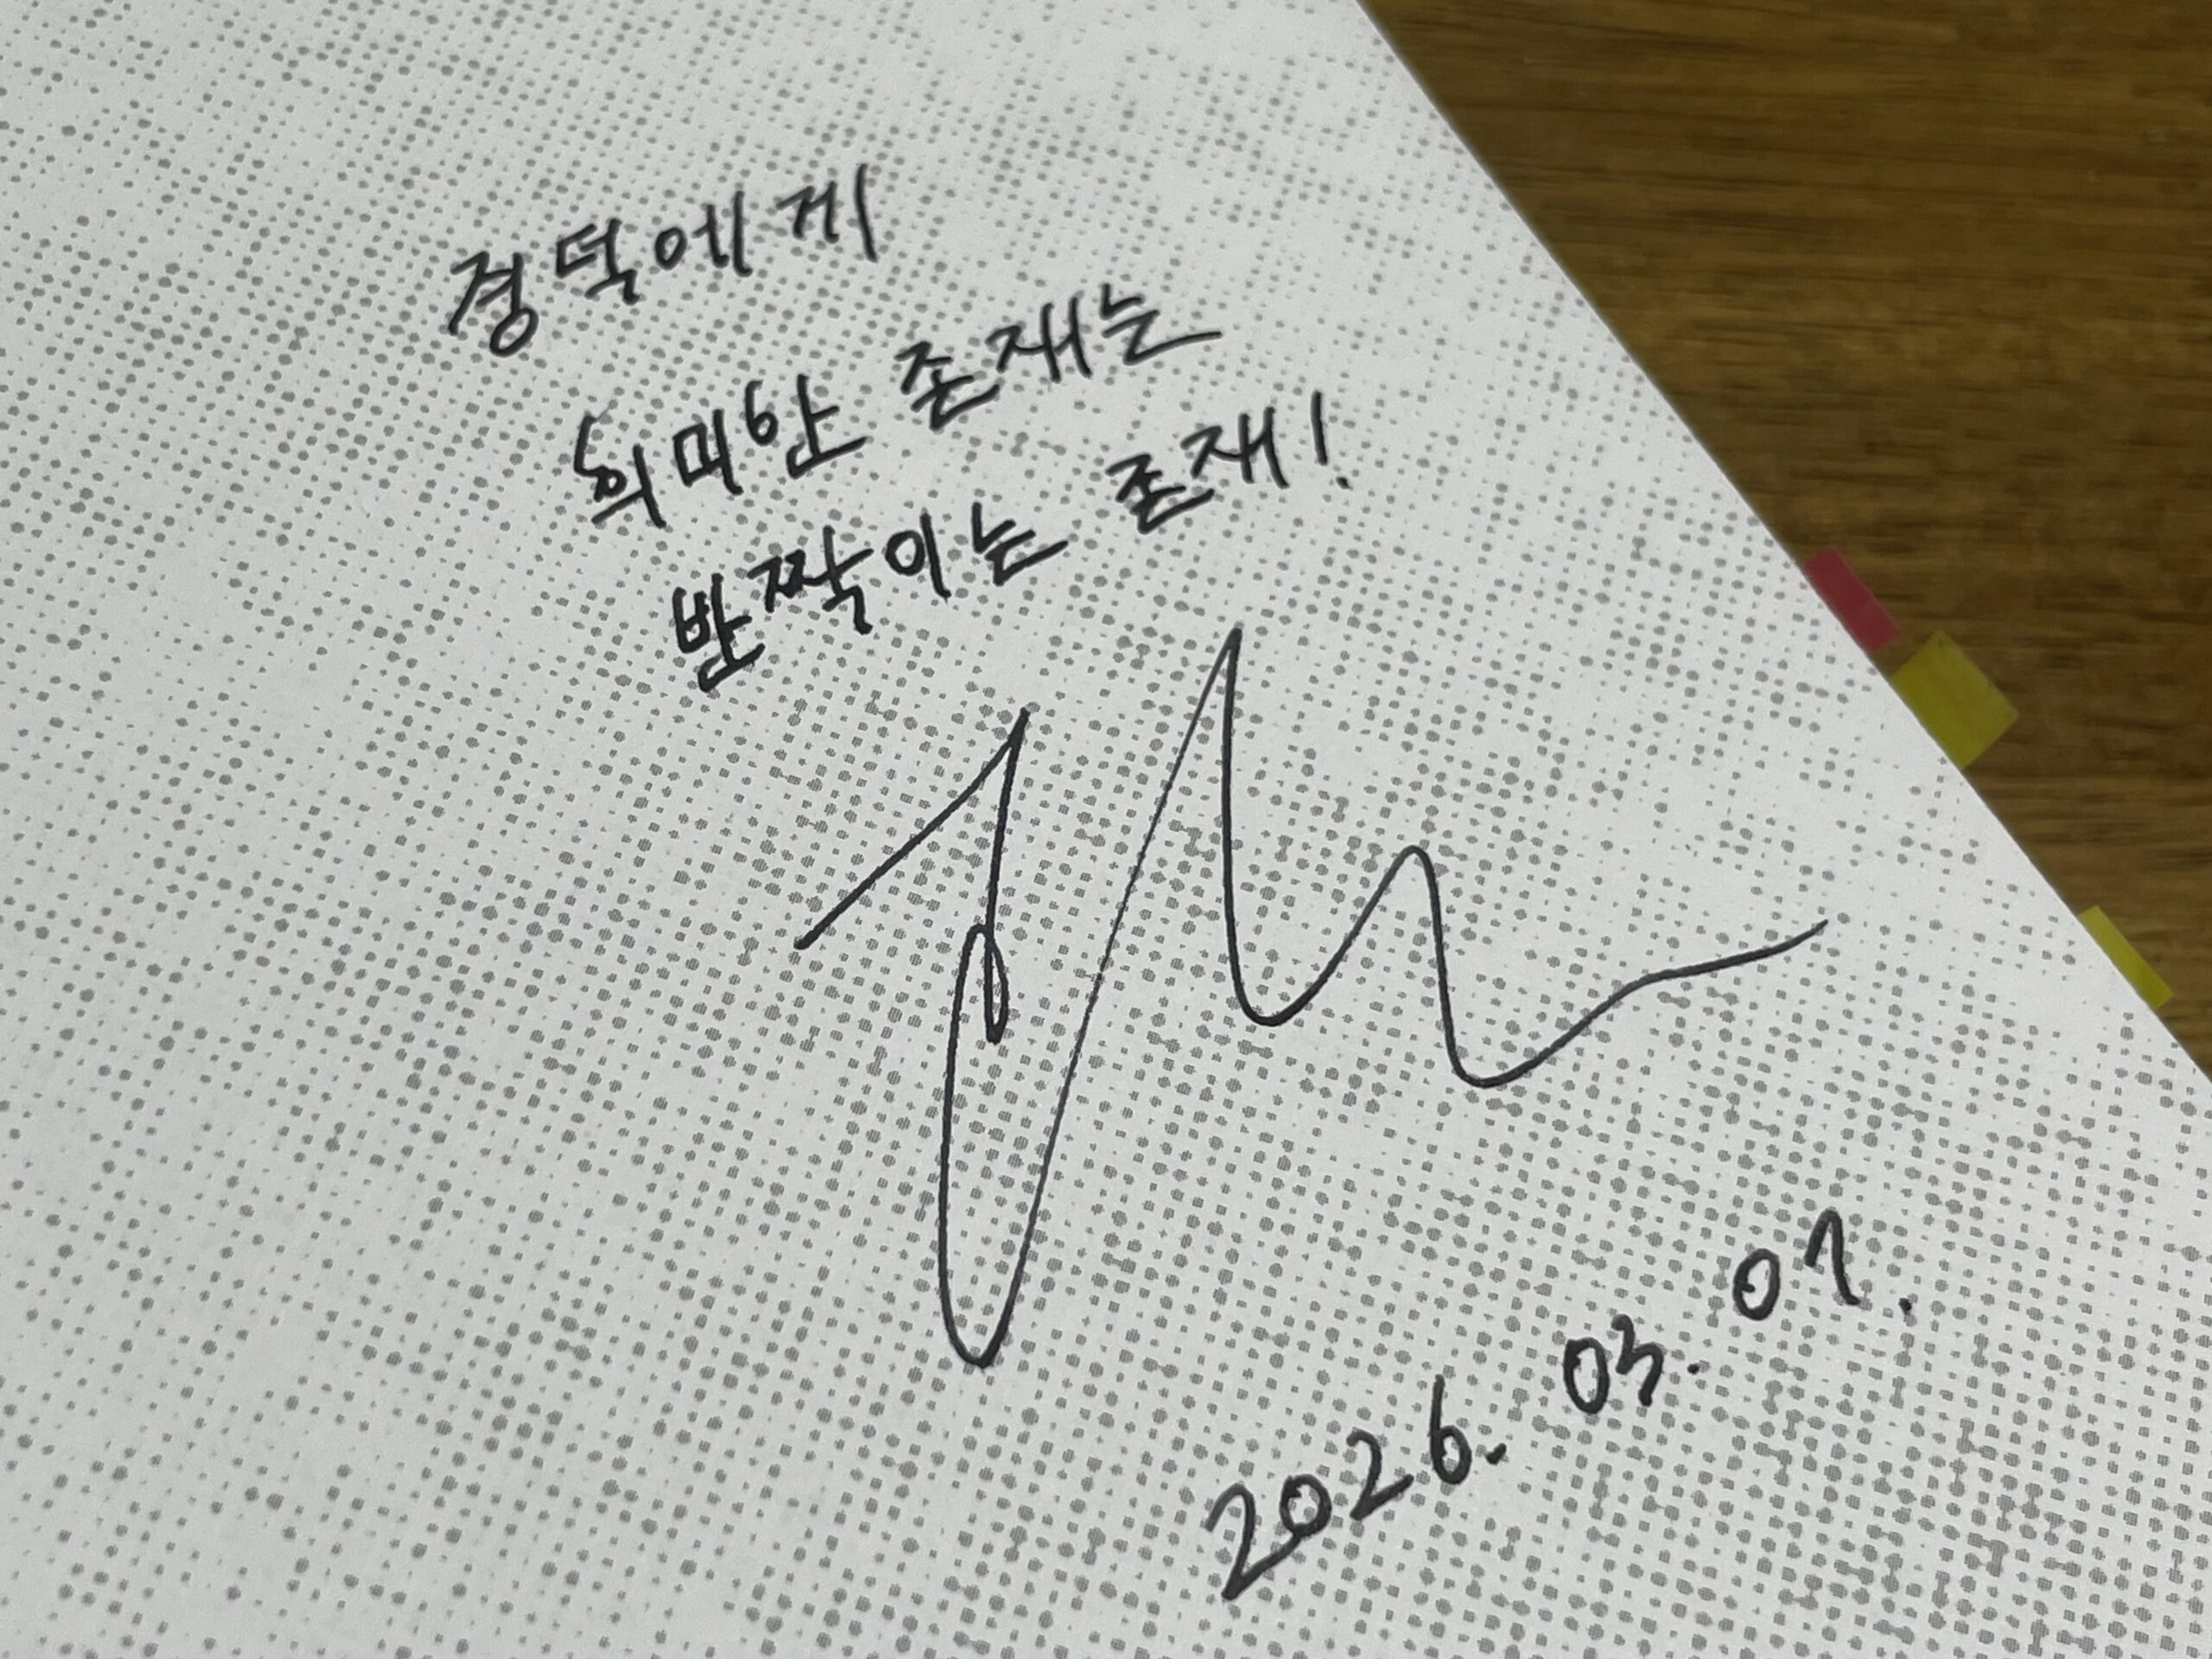 경덕에게
희미한 존재는
반짝이는 존재!
2026. 03. 07.